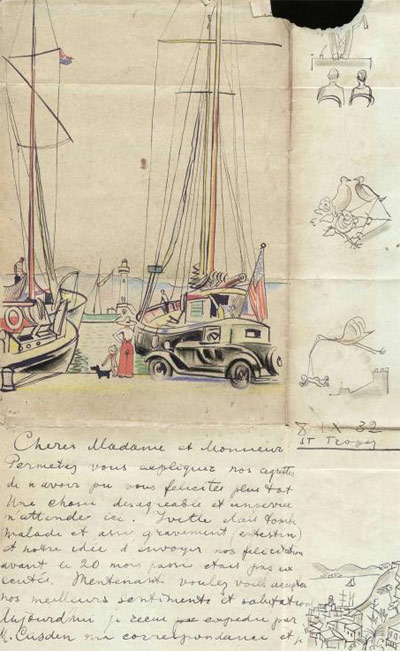 8 IX 32
St Tropez
Cheres Madame et Monsieur
Permetez vous expliquer nos regrettes
de n avoir pu vous feliciter plus tot
Une chose desagreable et
m'attendez ici. Ivette etait tombe
malade et assez gravement (intestin)
et notre idee d envoyer nos felicitation
avant le 20 mois passe etait pas
Mentenant voulez vous accepter
nos meilleurs sentiments et salutations
Aujourdhui je recu expedie par
M. Cusden ma correspondance et